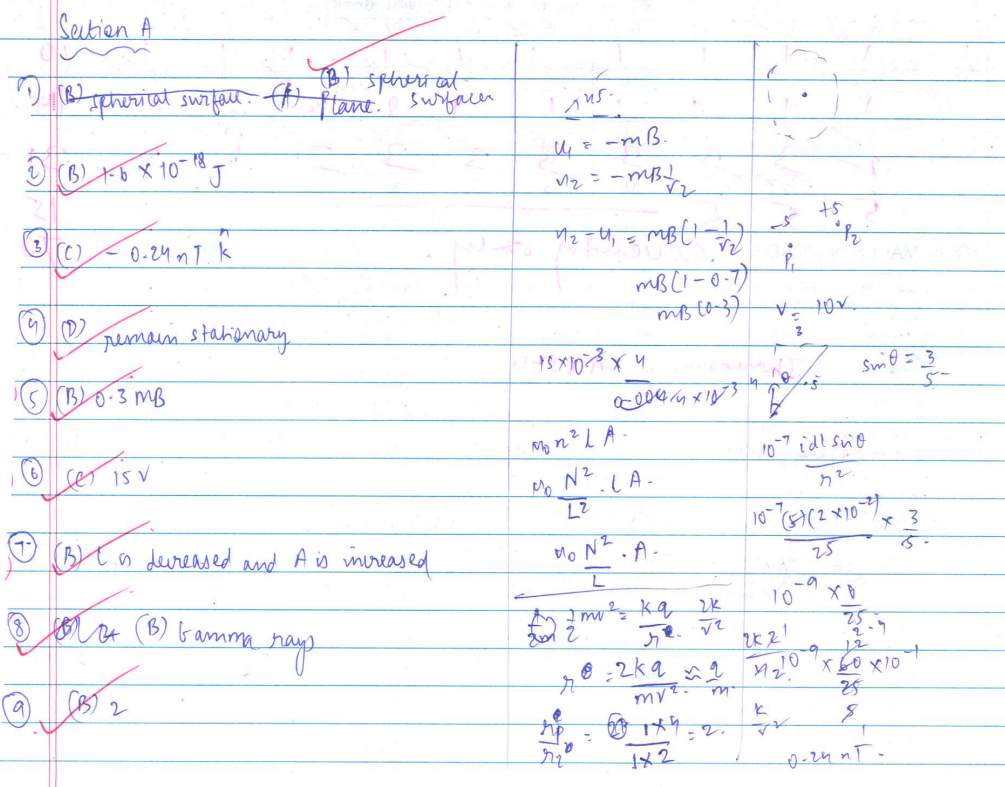 Section A
① (B) spherical surface. (A) Plane. (B) spherical surfaces
② (B) 1.6 × 10⁻¹⁸ J
③ (C) - 0.24 nT. k̂
④ (D) remain stationary
⑤ (B) 0.3 mB
⑥ (C) 15 V
⑦ (B) L is decreased and A is increased
⑧ (B) Gamma rays
⑨ (B) 2
45.
u₁ = -mB.
u₂ = -mB 1/√2
u₂ - u₁ = mB(1 - 1/√2)
mB(1 - 0.7)
mB(0.3)
15 × 10⁻³ × 4
4 × 10⁻³
μ₀ n² L A.
μ₀ N²/L² . L A.
μ₀ N²/L . A.
1/2 mv² = kq/r
r = 2kq/mv² ≈ q/m.
= 1×4/1×2 = 2.
-5 +5
P₁ P₂
V = 10V.
3
4 θ 5
sinθ = 3/5
10⁻⁷ idl sinθ/r²
10⁻⁷ (5)(2 × 10⁻²)/25 × 3/5.
10⁻⁹ × 6/25
10⁻⁹ × 60/25 × 10⁻¹
0.24 nT.